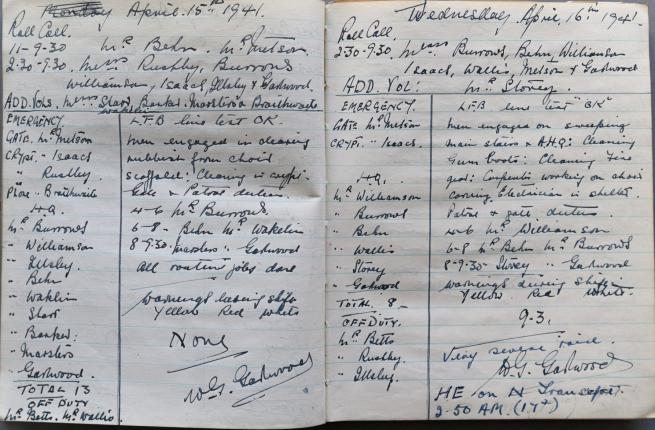 Monday April. 15th 1941.
Roll Call.
11-9-30 Mr Behn. Mr Metson.
2-30-9.30. Messrs Rushby, Burrows
Williamson, Isaacs, Illsley & Garwood.
ADD. VOLS. Messrs Shart, Banker. Marsters & Braithwaite
EMERGENCY.
GATE. Mr Metson
CRYPT. - Isaacs
" Rushby
PHONE " Braithwaite
H.Q.
Mr Burrows
" Williamson
" Illsley
" Behn
" Wakelin
" Shart
" Banker:
" Marsters
" Garwood
TOTAL 13
OFF DUTY
Mr Betts. Mr Wallis
L.F.B line test OK.
Men engaged in clearing
rubbish from choir
scaffold: Cleaning in crypt.
Gate & Patrol duties.
4-6 Mr Burrows
6-8- Behn Mr Wakelin
8-9.30. Marsters " Garwood
All routine jobs done
Warnings during shift
Yellow Red White
None
W.G. Garwood
Wednesday April, 16th 1941.
Roll Call.
2-30-9.30. Messrs Burrows, Behn, Williamson
Isaacs, Wallis, Metson & Garwood
ADD. VOL: Mr Storey.
EMERGENCY
GATE Mr Metson
CRYPT. " Isaacs
H.Q.
Mr Williamson
" Burrows
" Behn
" Wallis
" Storey
" Garwood
TOTAL 8-
OFF DUTY.
Mr Betts
" Rushby.
" Illsley.
L.F.B line test "OK"
Men engaged on sweeping
main stairs & A.H.Q: Cleaning
Gum boots: Cleaning Fire
Carpenters working on choir
Electrician in shelter.
Patrol & gate duties.
4-6 Mr Williamson
6-8 Mr Behn Mr Burrows
8-9-30- Storey " Garwood
Warnings during shift
Yellow Red White.
9-3.
Very severe raid.
W.G. Garwood
HE on N Transept.
2-50 AM. (17th)